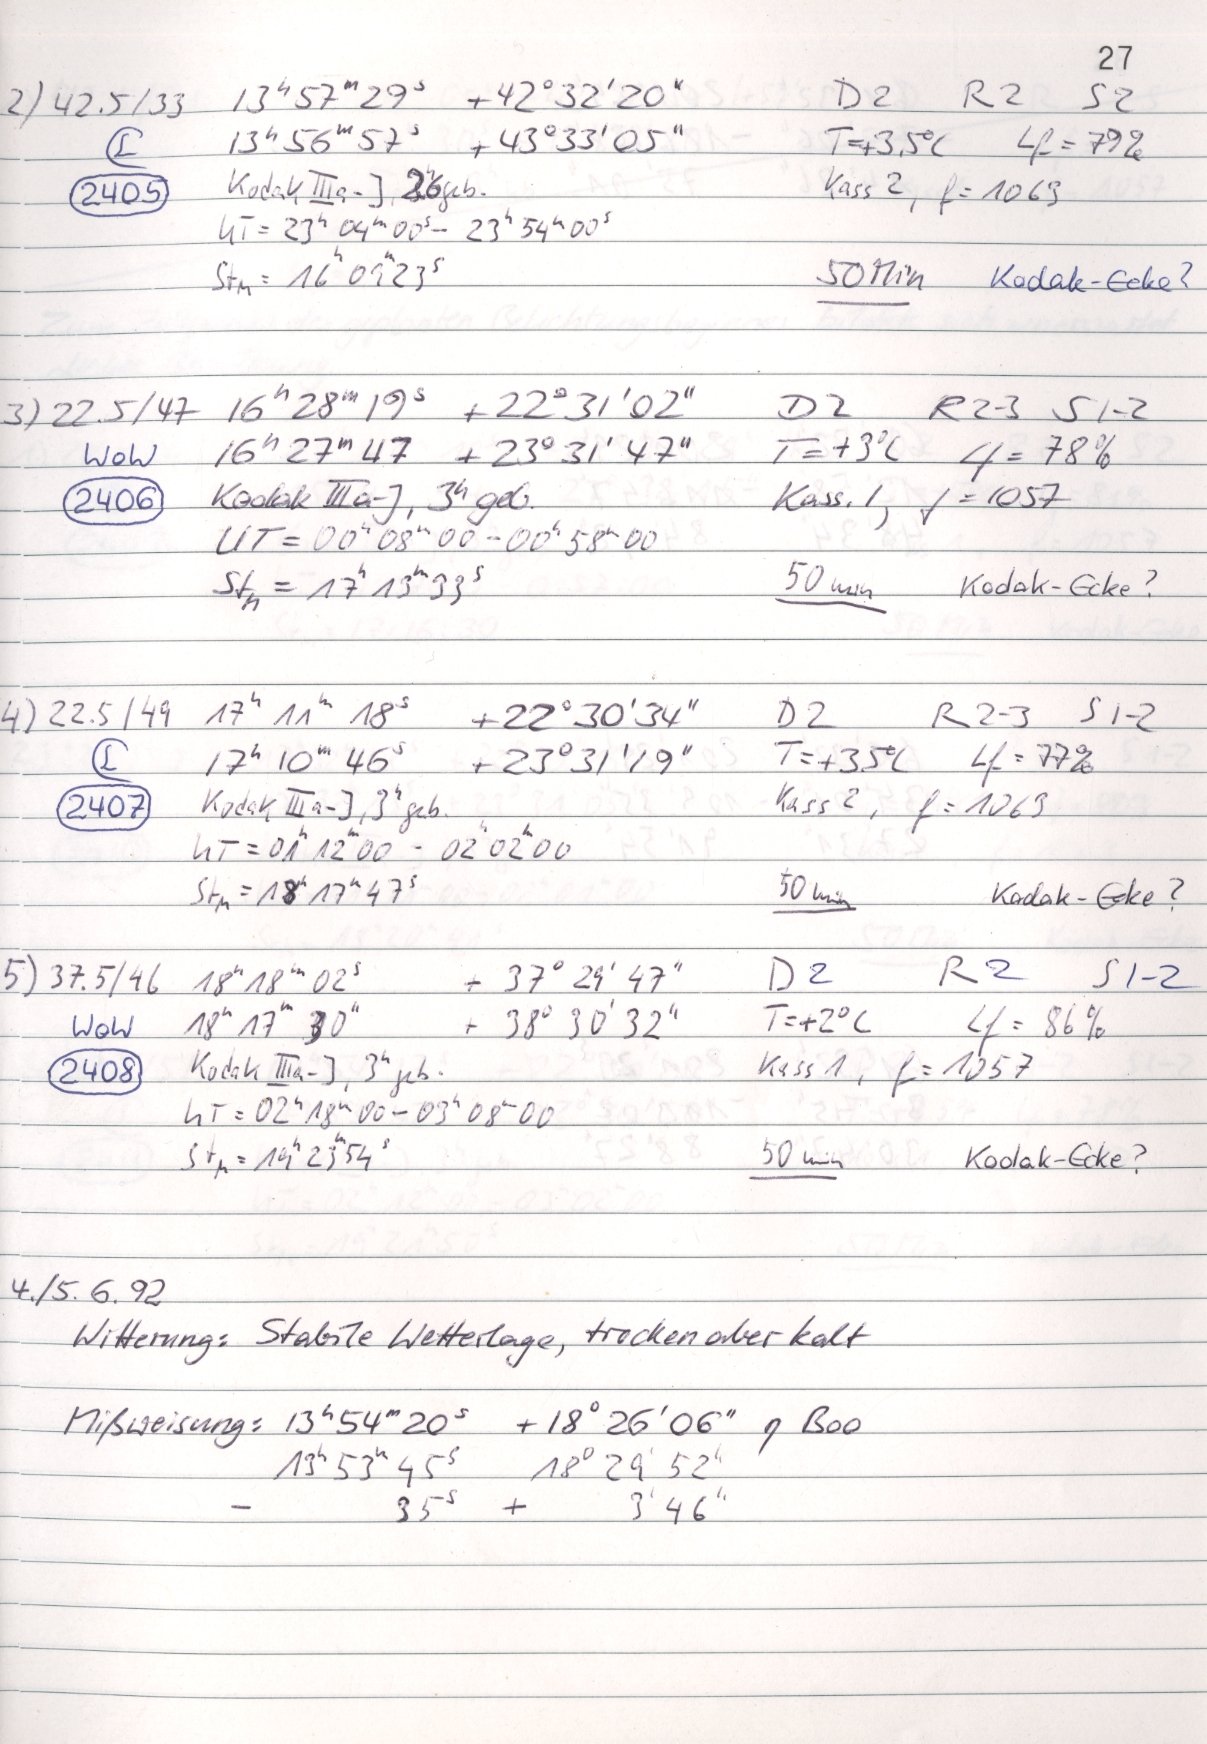 27
2) 42.5/33 13ʰ 57ᵐ 29ˢ +42° 32' 20" D2 R2 S2
13ʰ 56ᵐ 57ˢ +43° 33' 05" T=+3.5°C Lf = 79%
2405 Kodak IIIa-J, geb. Kass 2, f = 1069
UT = 23ʰ 04ᵐ 00ˢ - 23ʰ 54ᵐ 00ˢ
Stₘ = 16ʰ 09ᵐ 23ˢ 50 Min Kodak-Ecke?
3) 22.5/47 16ʰ 28ᵐ 19ˢ +22° 31' 02" D2 R2-3 S1-2
WoW 16ʰ 27ᵐ 47 +23° 31' 47" T=+3°C Lf = 78%
2406 Kodak IIIa-J, 3ʰ geb. Kass. 1, f = 1057
UT = 00ʰ 08ᵐ 00 - 00ʰ 58ᵐ 00
Stₘ = 17ʰ 13ᵐ 33ˢ 50 min Kodak-Ecke?
4) 22.5/49 17ʰ 11ᵐ 18ˢ +22° 30' 34" D2 R2-3 S1-2
17ʰ 10ᵐ 46ˢ +23° 31' 19" T=+3.5°C Lf = 77%
2407 Kodak IIIa-J, 3ʰ geb. Kass 2, f = 1069
UT = 01ʰ 12ᵐ 00 - 02ʰ 02ᵐ 00
Stₘ = 18ʰ 17ᵐ 47ˢ 50 min Kodak-Ecke?
5) 37.5/46 18ʰ 18ᵐ 02ˢ + 37° 29' 47" D2 R2 S1-2
WoW 18ʰ 17ᵐ 30" + 38° 30' 32" T=+2°C Lf = 86%
2408 Kodak IIIa-J, 3ʰ geb. Kass 1, f = 1057
UT = 02ʰ 18ᵐ 00 - 03ʰ 08ᵐ 00
Stₘ = 19ʰ 23ᵐ 54ˢ 50 min Kodak-Ecke?
4./5. 6. 92
Witterung: Stabile Wetterlage, trocken aber kalt
Mißweisung: 13ʰ 54ᵐ 20ˢ +18° 26' 06" η Boo
13ʰ 53ᵐ 45ˢ 18° 29' 52"
- 35ˢ + 3' 46"